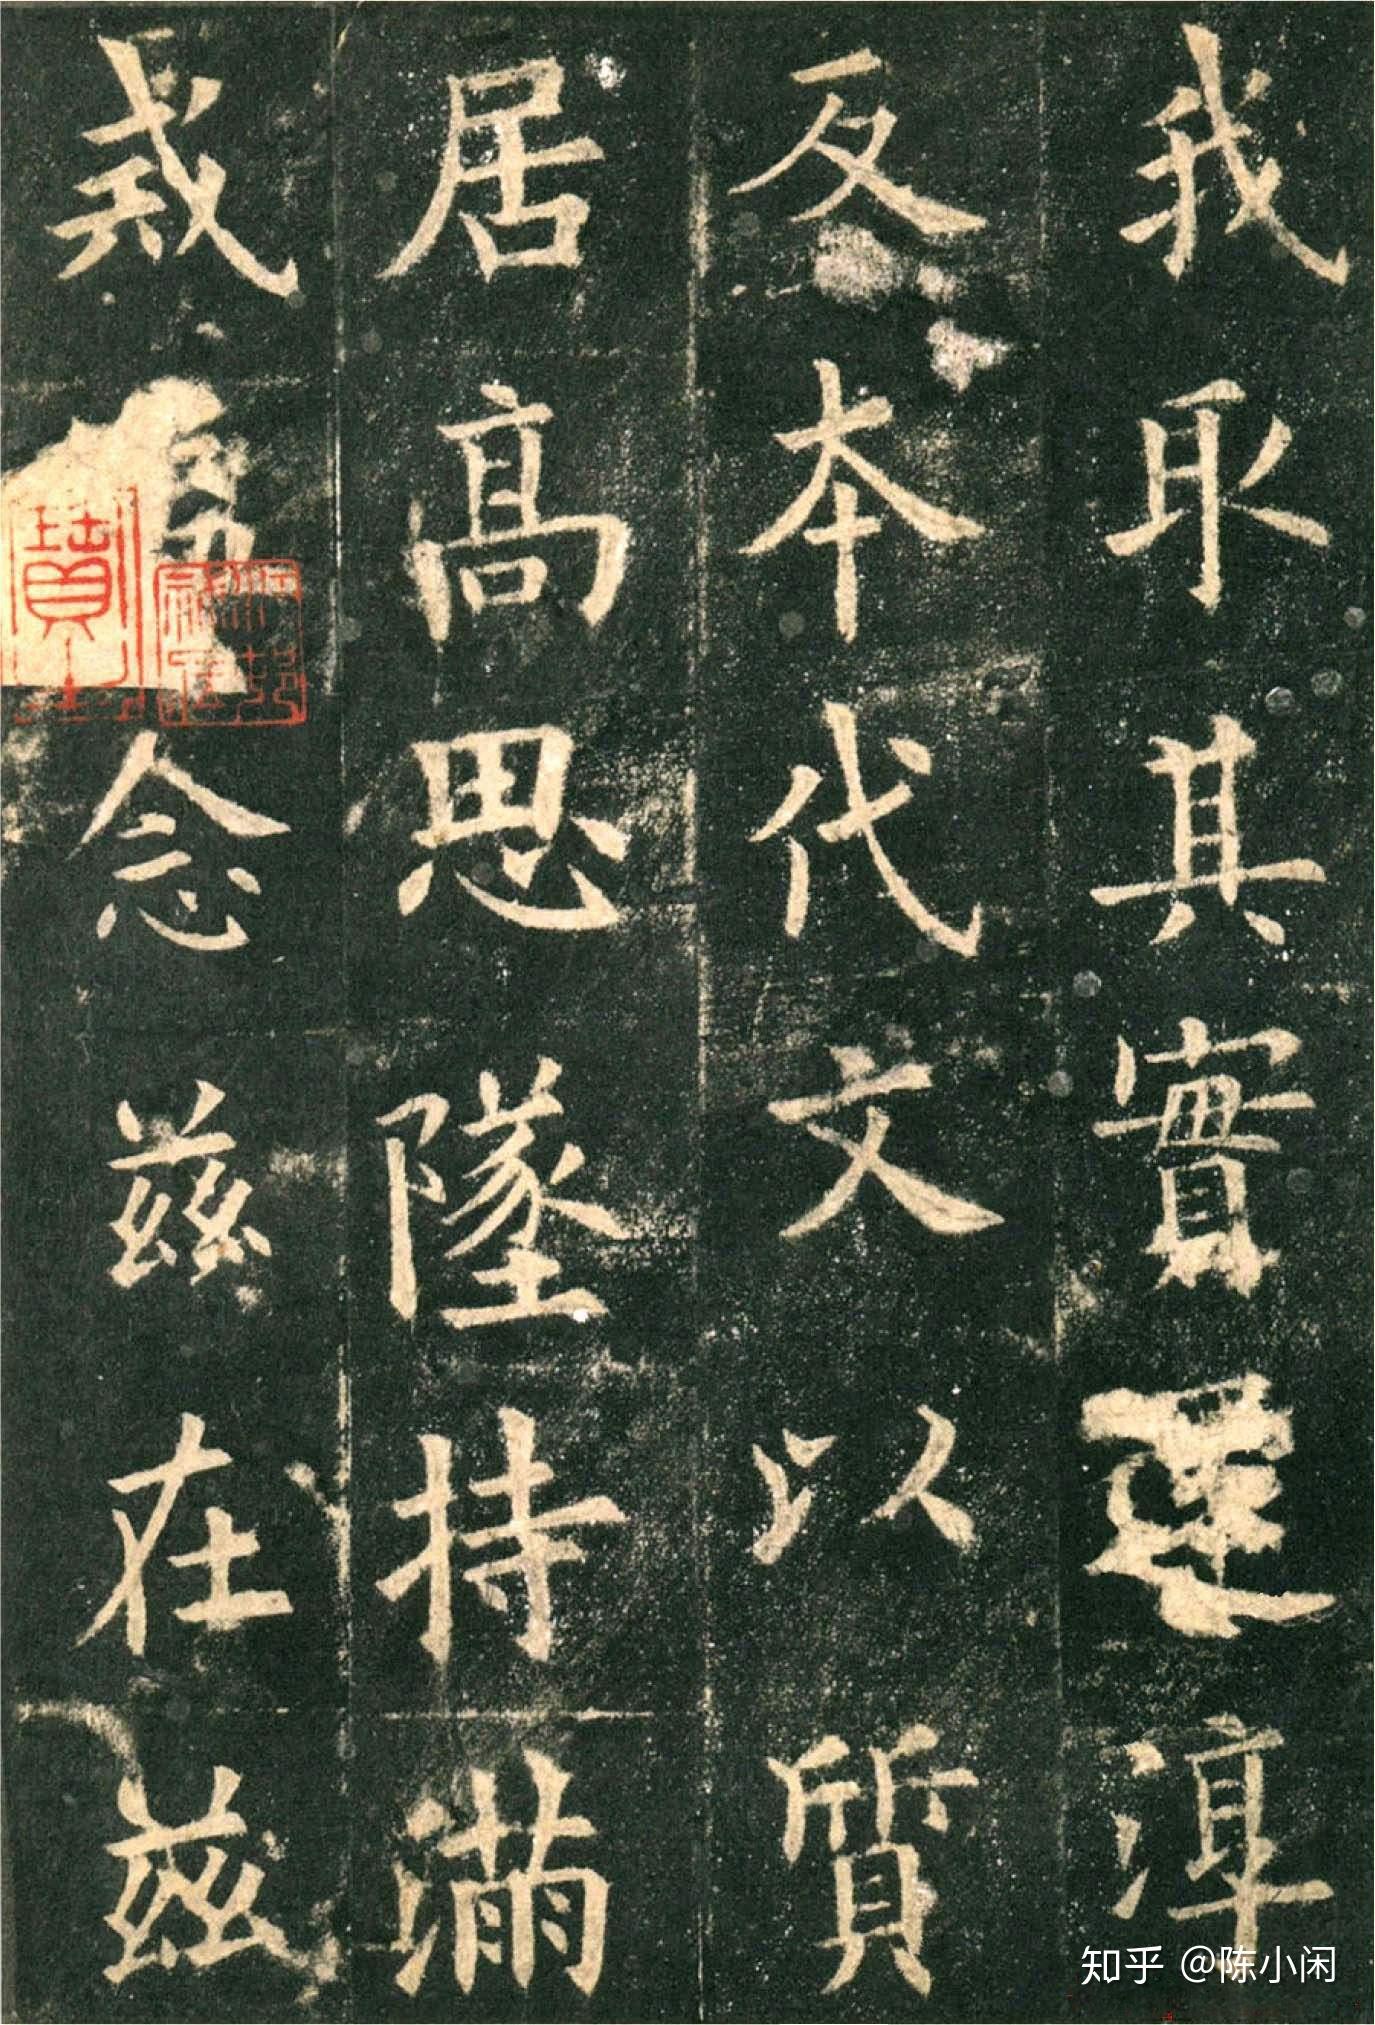 我取其實還淳
反本代文以質
居高思墜持滿
戒溢念茲在茲
知乎 @陈小闲